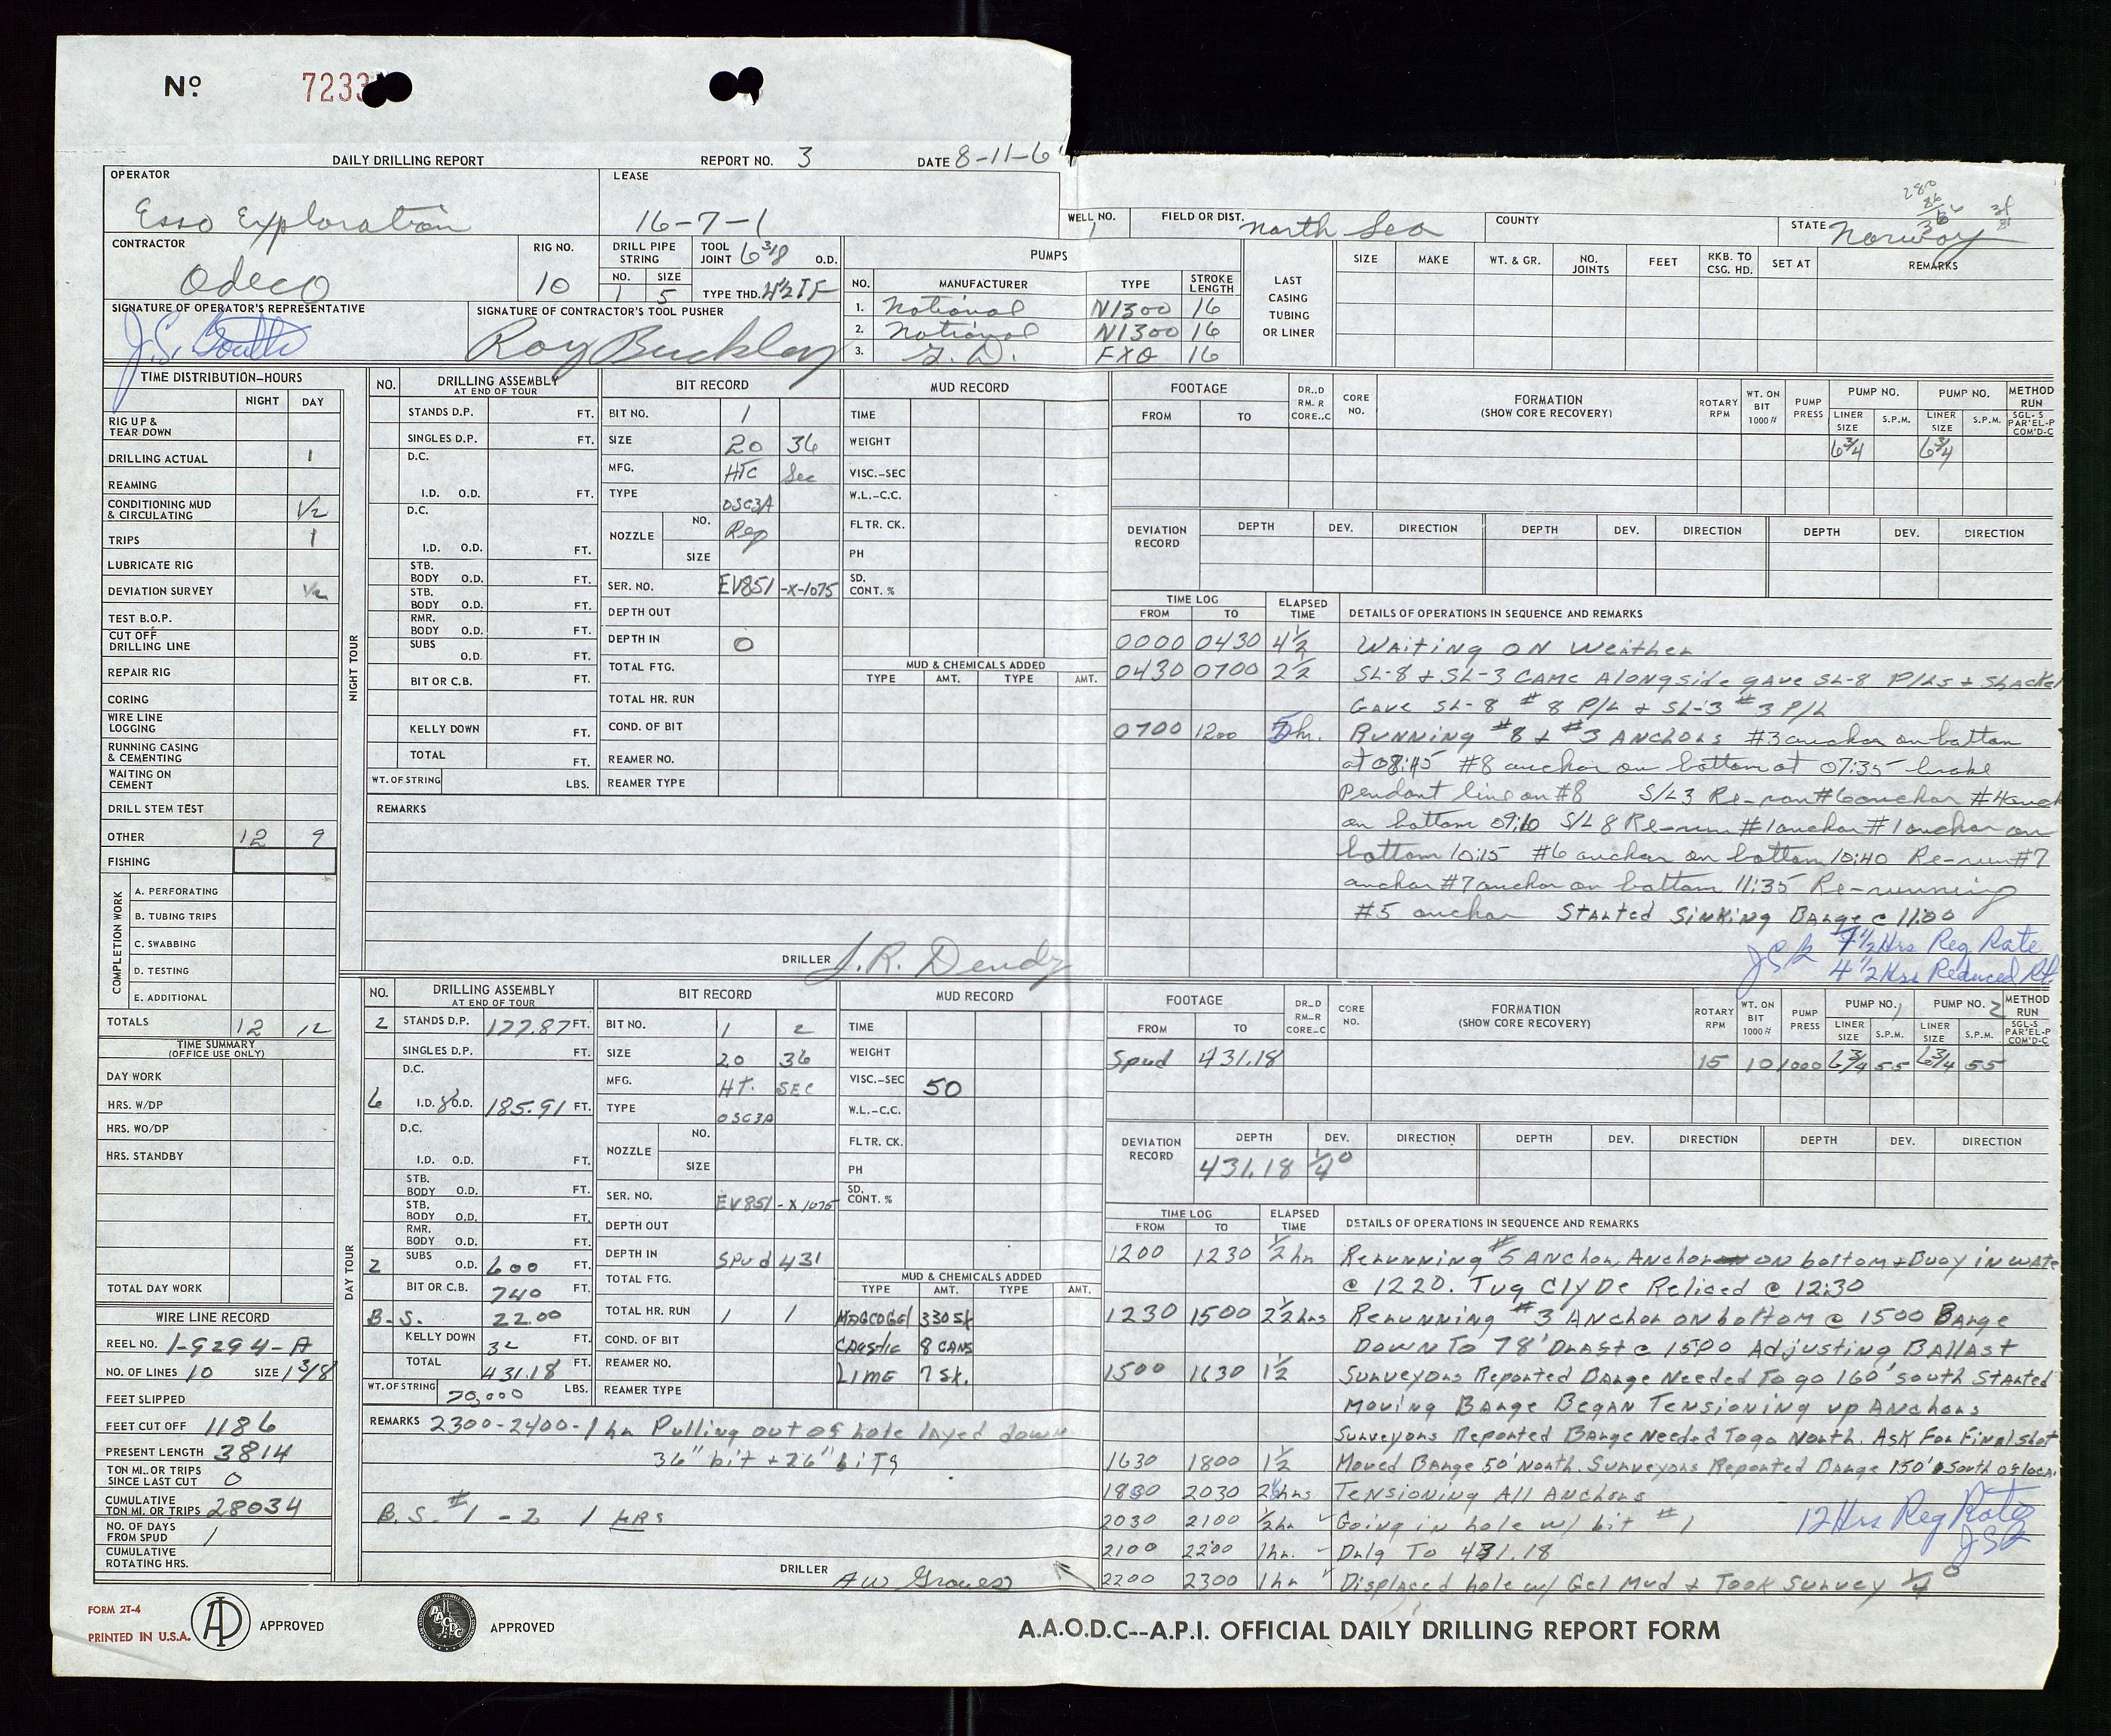 Nº 7233
DAILY DRILLING REPORT REPORT NO. 3 DATE 8-11-6
OPERATOR LEASE
Esso Exploration 16-7-1
WELL NO. 1 FIELD OR DIST. North Sea COUNTY STATE Norway
CONTRACTOR RIG NO. DRILL PIPE STRING TOOL JOINT 6 3/8 O.D. PUMPS
Odeco 10 NO. 1 SIZE 5 TYPE THD. 4½ IF
NO. MANUFACTURER TYPE STROKE LENGTH
1. National N1300 16
2. National N1300 16
3. G.D. FXO 16
LAST CASING TUBING OR LINER SIZE MAKE WT. & GR. NO. JOINTS FEET RKB. TO CSG. HD. SET AT REMARKS
SIGNATURE OF OPERATOR'S REPRESENTATIVE SIGNATURE OF CONTRACTOR'S TOOL PUSHER
Roy Buckley
TIME DISTRIBUTION-HOURS
NIGHT DAY
RIG UP & TEAR DOWN
DRILLING ACTUAL 1
REAMING
CONDITIONING MUD & CIRCULATING 1/2
TRIPS 1
LUBRICATE RIG
DEVIATION SURVEY 1/2
TEST B.O.P.
CUT OFF DRILLING LINE
REPAIR RIG
CORING
WIRE LINE LOGGING
RUNNING CASING & CEMENTING
WAITING ON CEMENT
DRILL STEM TEST
OTHER 12 9
FISHING
COMPLETION WORK
A. PERFORATING
B. TUBING TRIPS
C. SWABBING
D. TESTING
E. ADDITIONAL
TOTALS 12 12
TIME SUMMARY (OFFICE USE ONLY)
DAY WORK
HRS. W/DP
HRS. WO/DP
HRS. STANDBY
TOTAL DAY WORK
WIRE LINE RECORD
REEL NO. 1-9294-A
NO. OF LINES 10 SIZE 1 3/8
FEET SLIPPED
FEET CUT OFF 1186
PRESENT LENGTH 3814
TON MI. OR TRIPS SINCE LAST CUT 0
CUMULATIVE TON MI. OR TRIPS 28034
NO. OF DAYS FROM SPUD 1
CUMULATIVE ROTATING HRS.
NIGHT TOUR
NO. DRILLING ASSEMBLY AT END OF TOUR
STANDS D.P. FT.
SINGLES D.P. FT.
D.C.
I.D. O.D. FT.
D.C.
I.D. O.D. FT.
STB. BODY O.D. FT.
STB. BODY O.D. FT.
RMR. BODY O.D. FT.
SUBS O.D. FT.
BIT OR C.B. FT.
KELLY DOWN FT.
TOTAL FT.
WT. OF STRING LBS.
BIT RECORD
BIT NO. 1
SIZE 20 36
MFG. HTC Sec
TYPE OSC3A
NOZZLE NO. Reg
SIZE
SER. NO. EV851 -X-1075
DEPTH OUT
DEPTH IN 0
TOTAL FTG.
TOTAL HR. RUN
COND. OF BIT
REAMER NO.
REAMER TYPE
MUD RECORD
TIME
WEIGHT
VISC.-SEC
W.L.-C.C.
FLTR. CK.
PH
SD. CONT. %
MUD & CHEMICALS ADDED
TYPE AMT. TYPE AMT.
REMARKS
DRILLER J.R. Dendy
FOOTAGE DR..D RM.R CORE..C CORE NO. FORMATION (SHOW CORE RECOVERY) ROTARY RPM WT. ON BIT 1000# PUMP PRESS PUMP NO. PUMP NO. METHOD RUN
FROM TO LINER SIZE S.P.M. LINER SIZE S.P.M. SGL-S PAR'EL-P COM'D-C
6¾ 6¾
DEVIATION RECORD DEPTH DEV. DIRECTION DEPTH DEV. DIRECTION DEPTH DEV. DIRECTION
TIME LOG ELAPSED TIME DETAILS OF OPERATIONS IN SEQUENCE AND REMARKS
FROM TO
0000 0430 4½ Waiting on Weather
0430 0700 2½ SL-8 & SL-3 Came Alongside gave SL-8 P/Ls & Shackel
Gave SL-8 #8 P/L & SL-3 #3 P/L
0700 1200 5 hr. Running #8 & #3 Anchors #3 anchor on bottom
at 08:45 #8 anchor on bottom at 07:35 broke
Pendant line on #8 S/L3 Re-run #6 anchor #4 anch
on bottom 09:10 S/L 8 Re-run #1 anchor #1 anchor on
bottom 10:15 #6 anchor on bottom 10:40 Re-run #7
anchor #7 anchor on bottom 11:35 Re-running
#5 anchor Started Sinking Barge @ 11:00
7½ Hrs Reg Rate
4½ Hrs Reduced Rt.
DAY TOUR
NO. DRILLING ASSEMBLY AT END OF TOUR
2 STANDS D.P. 177.87 FT.
SINGLES D.P. FT.
D.C.
6 I.D. 8 O.D. 185.91 FT.
D.C.
I.D. O.D. FT.
STB. BODY O.D. FT.
STB. BODY O.D. FT.
RMR. BODY O.D. FT.
2 SUBS O.D. 600 FT.
BIT OR C.B. 740
B.S. 22.00
KELLY DOWN 32 FT.
TOTAL 431.18 FT.
WT. OF STRING 70,000 LBS.
BIT RECORD
BIT NO. 1 2
SIZE 20 36
MFG. HT. SEC
TYPE OSC3A
NOZZLE NO.
SIZE
SER. NO. EV851 -X1075
DEPTH OUT
DEPTH IN Spud 431
TOTAL FTG.
TOTAL HR. RUN 1 1
COND. OF BIT
REAMER NO.
REAMER TYPE
MUD RECORD
TIME
WEIGHT
VISC.-SEC 50
W.L.-C.C.
FLTR. CK.
PH
SD. CONT. %
MUD & CHEMICALS ADDED
TYPE AMT. TYPE AMT.
MAGCOGEL 330 SK
CAUSTIC 8 CANS
LIME 7 SK.
REMARKS 2300-2400-1 hr Pulling out of hole layed down
36" bit + 26" bits
B.S. #1 - 2 1 HRS
DRILLER AW Graves
FOOTAGE DR..D RM..R CORE..C CORE NO. FORMATION (SHOW CORE RECOVERY) ROTARY RPM WT. ON BIT 1000# PUMP PRESS PUMP NO. 1 PUMP NO. 2 METHOD RUN
FROM TO LINER SIZE S.P.M. LINER SIZE S.P.M. SGL-S PAR'EL-P COM'D-C
Spud 431.18 15 10 1000 6¾ 55 6¾ 55
DEVIATION RECORD DEPTH DEV. DIRECTION DEPTH DEV. DIRECTION DEPTH DEV. DIRECTION
431.18 ¼°
TIME LOG ELAPSED TIME DETAILS OF OPERATIONS IN SEQUENCE AND REMARKS
FROM TO
1200 1230 ½ hn Rerunning #5 Anchor, Anchor on bottom & Buoy in wate
@ 1220. Tug Clyde Reliced @ 12:30
1230 1500 2½ hrs Rerunning #3 Anchor on bottom @ 1500 Barge
Down To 78' Draft @ 1500 Adjusting Ballast
1500 1630 1½ Surveyors Reported Barge Needed To go 160' south Started
moving Barge Began Tensioning up Anchors
Surveyors Reported Barge Needed To go North. Ask For Final shot
1630 1800 1½ Moved Barge 50' North. Surveyors Reported Barge 150' South of loca.
1800 2030 2½ hrs Tensioning All Anchors
2030 2100 ½ hr Going in hole w/ bit #1 12 Hrs Reg Rate
2100 2200 1 hr. Drlg To 431.18
2200 2300 1 hr Displaced hole w/ Gel Mud & Took Survey ¼°
FORM 2T-4
PRINTED IN U.S.A. APPROVED APPROVED
A.A.O.D.C--A.P.I. OFFICIAL DAILY DRILLING REPORT FORM